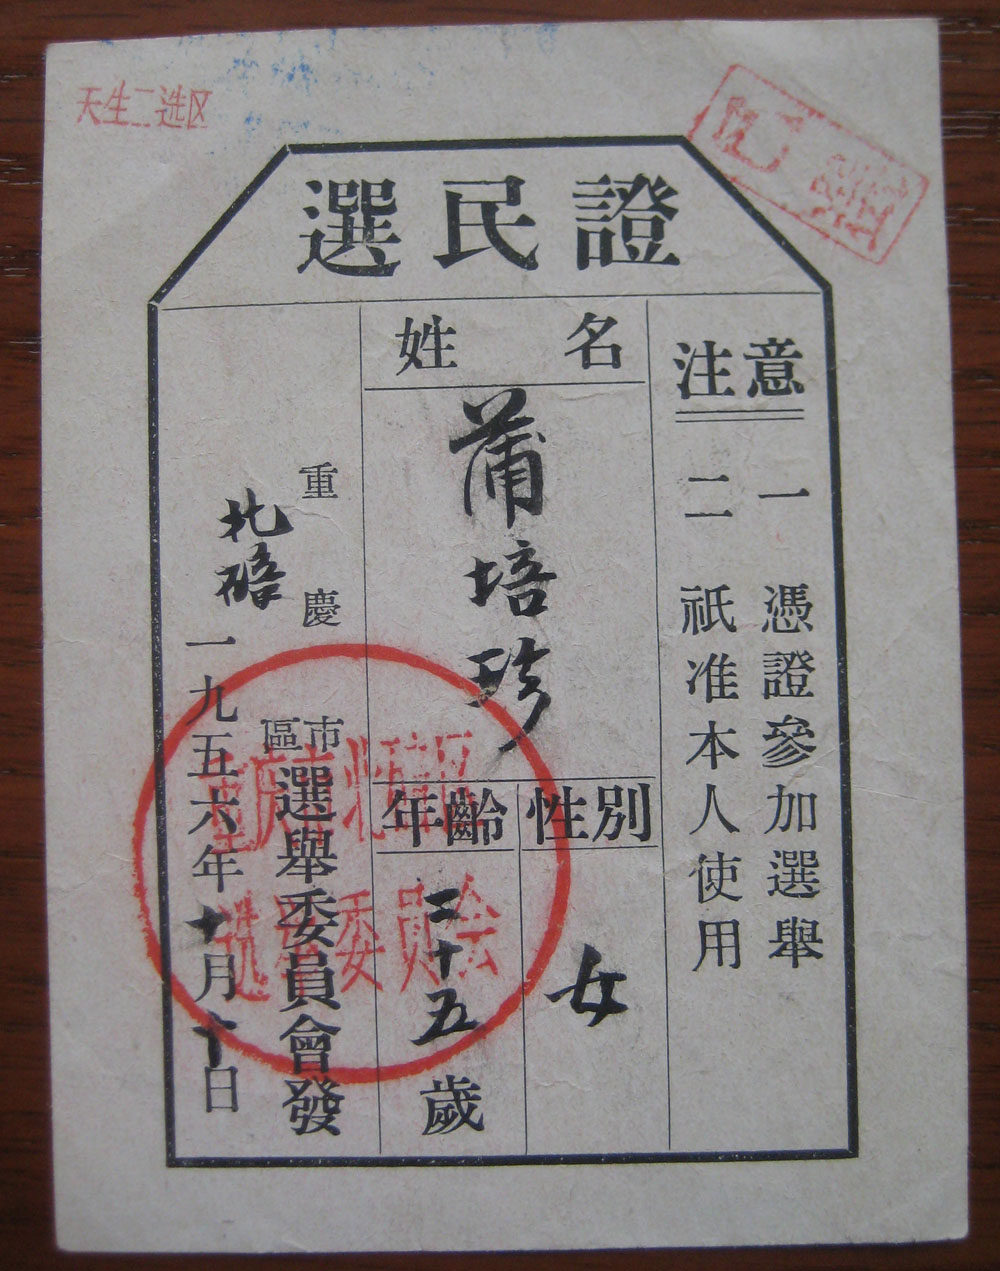 天生二选区
選民證
注意
一 憑證參加選舉
二 祇准本人使用
姓名
蒲培珍
性別
女
年齡
二十五歲
重慶市
北碚區
選舉委員會發
一九五六年十月十日
重庆市北碚区
选举委員会